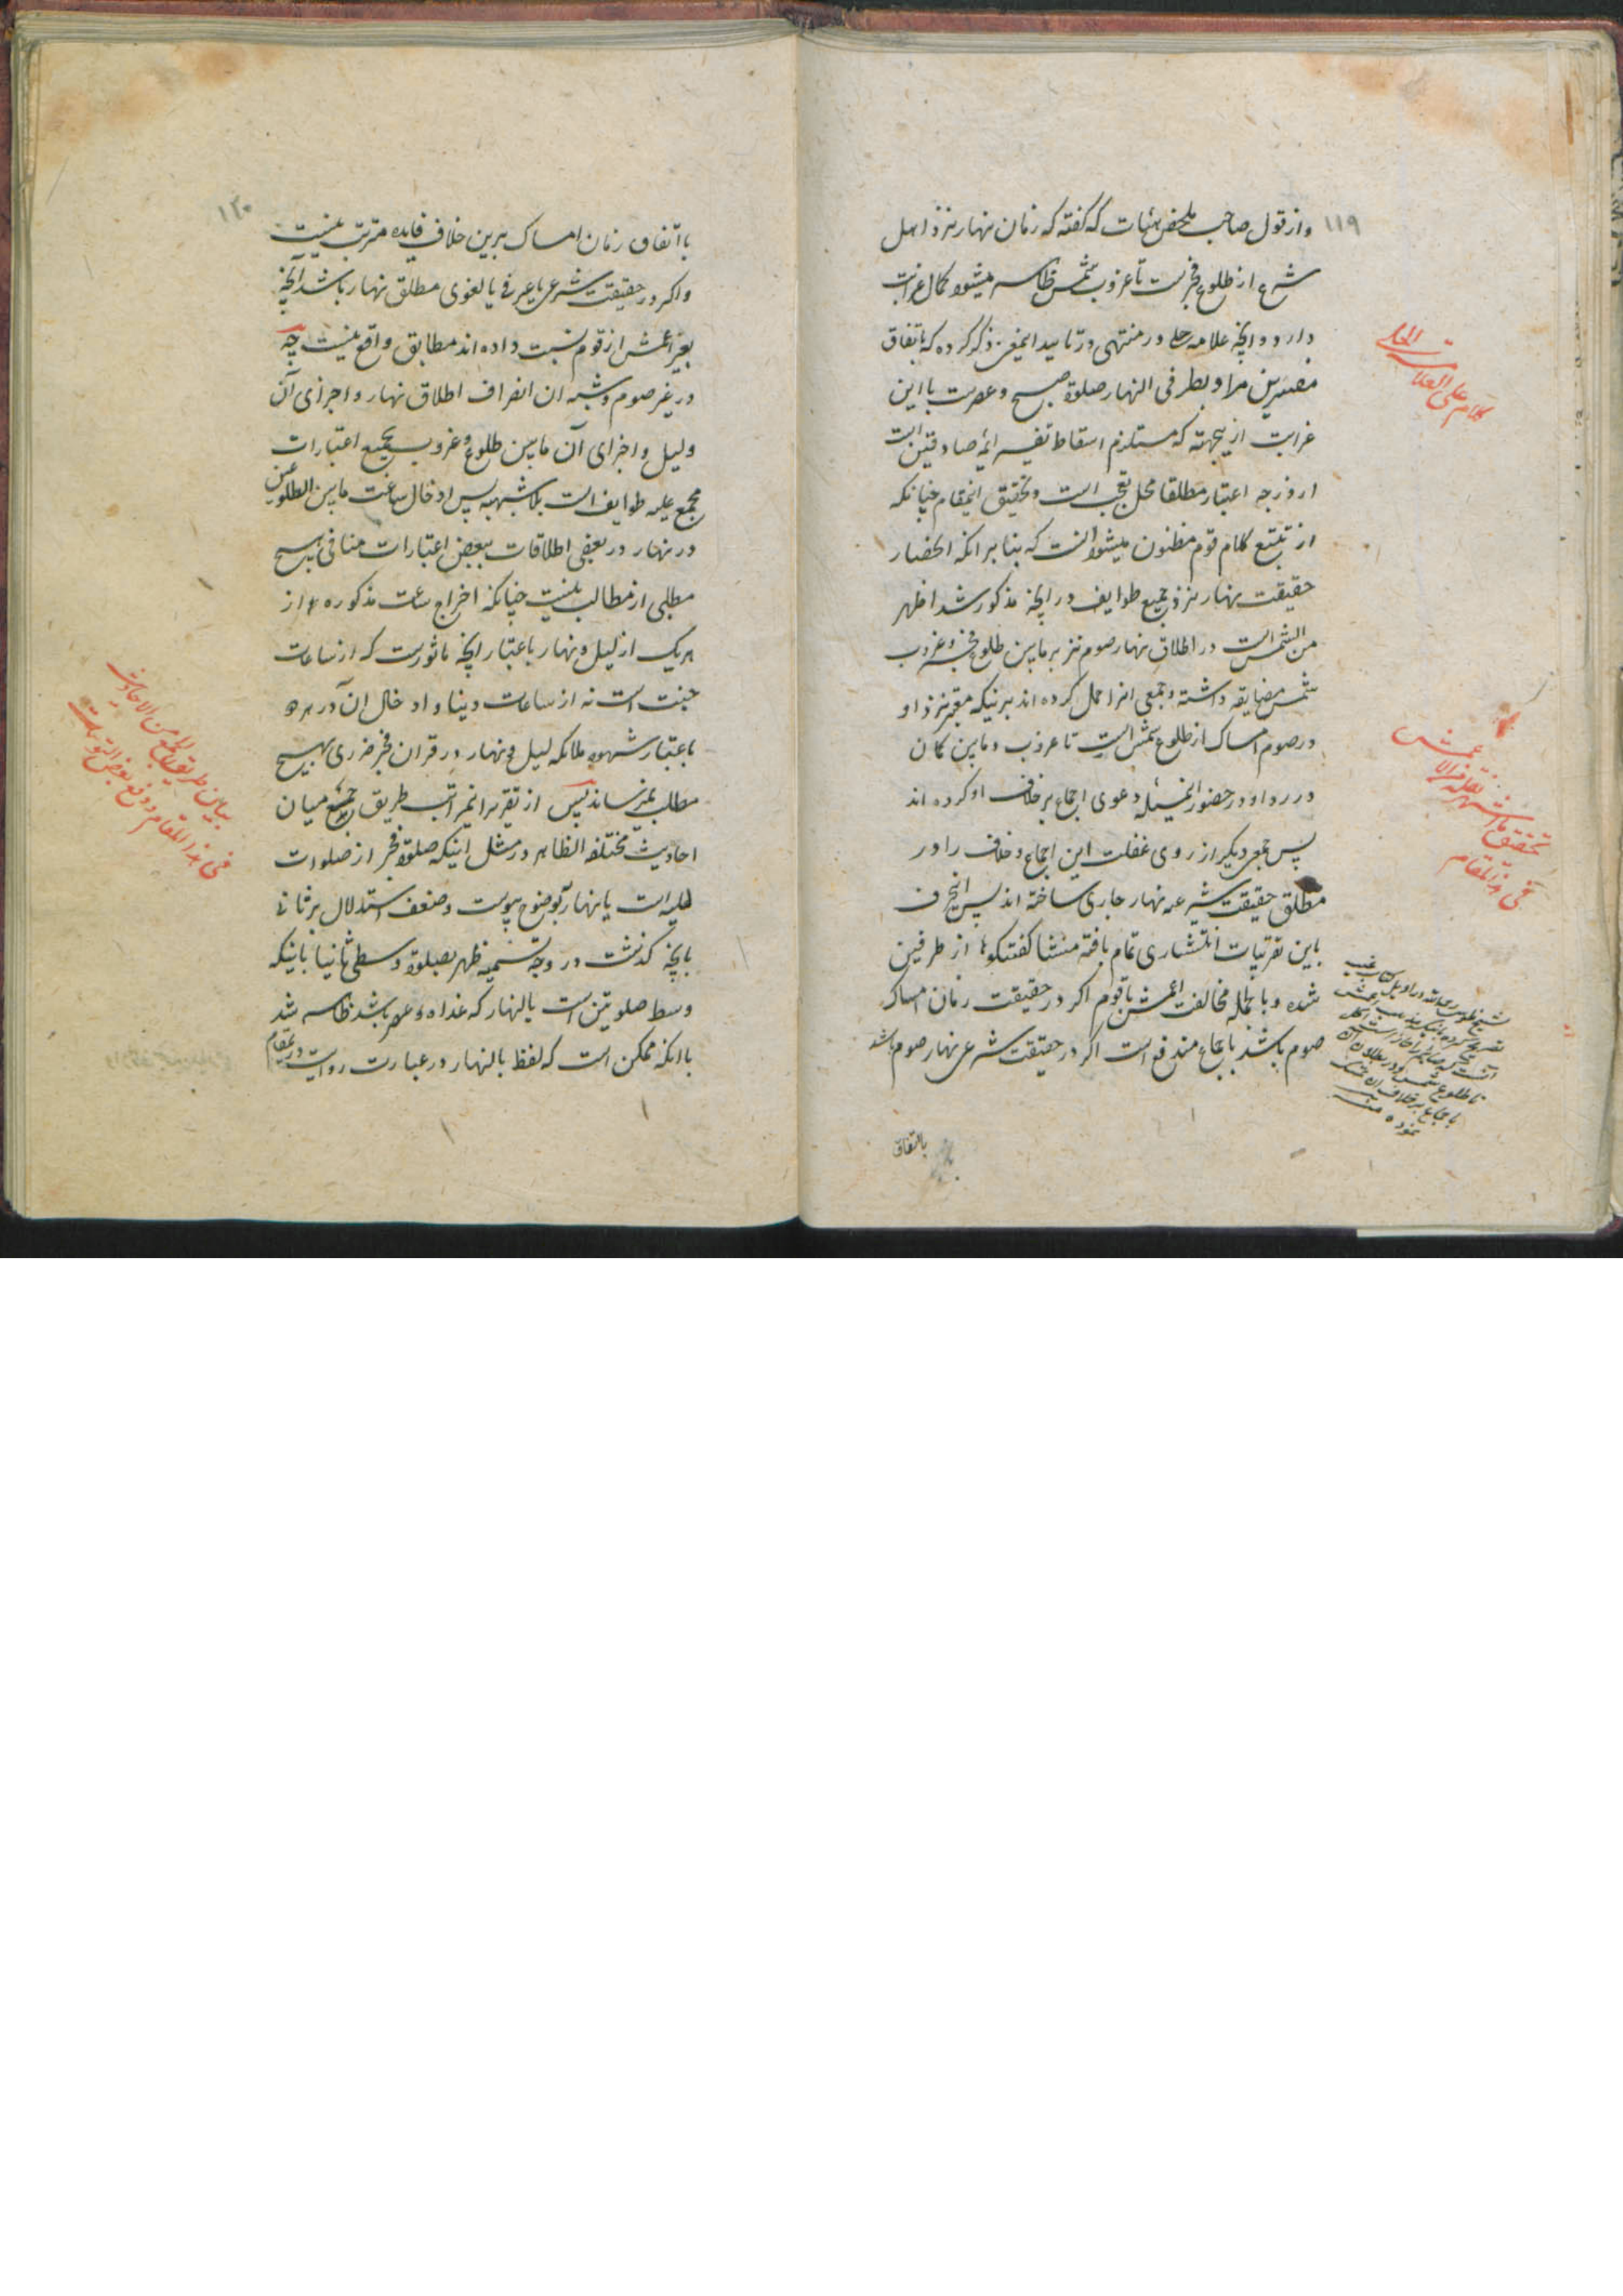 ۱۱۹
و از قول صاحب ملخص هیئات که گفته که زمان نهار نزد اهل
شرع از طلوع فجرست تا غروب شمس ظاهر میشود کمال غرابت
دارد و آنچه علامه حلی در منتهی در تایید اینمعنی ذکر کرده که باتفاق
مفسرین مراد بطرفی النهار صلوة صبح و عصرست با این
غرابت ازینجهته که مستلزم اسقاط تفسیر ائمه صادقین است
از درجه اعتبار مطلقا محل تعجب است و تحقیق اینمقام چنانکه
از تتبع کلام قوم مظنون میشود آنست که بنا بر آنکه انحصار
حقیقت نهار نزد جمیع طوایف در آنچه مذکور شد اظهر
من الشمس است در اطلاق نهار صوم نیز بر مابین طلوع فجر و غروب
شمس مضایقه داشته و جمعی انرا حمل کرده اند برینکه معتبر نزد او
در صوم امساک از طلوع شمس است تا غروب و مابین کان
در رد او در حضور اینمسئله دعوی اجماع بر خلاف او کرده اند
پس جمعی دیگر از روی غفلت این اجماع و خلاف را در
مطلق حقیقت شرعیه نهار جاری ساخته اند پس اینحرف
باین تقریبات انتشاری تمام یافته منشا گفتگوها از طرفین
شده و بالجمله مخالفت اعمش با قوم اگر در حقیقت زمان امساک
صوم باشد باجماع مندفع است اگر در حقیقت شرعی نهار صوم باشد
باتفاق
کلام علی العلامة الحلی
تحقیق ما اشتهر نقله من الاعمش
فی هذا المقام
۱۲۰
با اتفاق زمان امساک برین خلاف فایده مترتب نیست
و اگر در حقیقت شرعی یا عرفی یا لغوی مطلق نهار باشد آنچه
بغیر اعمش از قوم نسبت داده اند مطابق واقع نیست چه
در غیر صوم و شبه آن انصراف اطلاق نهار و اجرای آن
ولیل و اجرای آن مابین طلوع و غروب بجمیع اعتبارات
مجمع علیه طوایف است بلا شبهه پس ادخال ساعت مابین الطلوعین
در نهار در بعضی اطلاقات ببعض اعتبارات منافی هیچ
مطلبی از مطالب نیست چنانکه اخراج ساعت مذکوره از
هریک از لیل و نهار باعتبار آنچه ماثورست که از ساعات
جنت است نه از ساعات دنیا و ادخال آن در هر دو
باعتبار شهود ملائکه لیل و نهار در قرآن فجر ضرری بهیچ
مطلب نمیرساند پس از تقریر اینمراتب طریق جمع میان
احادیث مختلفة الظاهر در مثل اینکه صلوة فجر از صلوات
لیلیه است یا نهاریه بوضوح پیوست و ضعف استدلال بر ثانی
بانچه گذشت در وجه تسمیه ظهر بصلوة وسطی ثانیا باینکه
وسط صلوتین است بالنهار که غداه و عصر باشد ظاهر شد
با آنکه ممکن است که لفظ بالنهار در عبارت روایت درینمقام
بیان طریق الجمع من الاحادیث
فی هذا المقام و دفع بعض